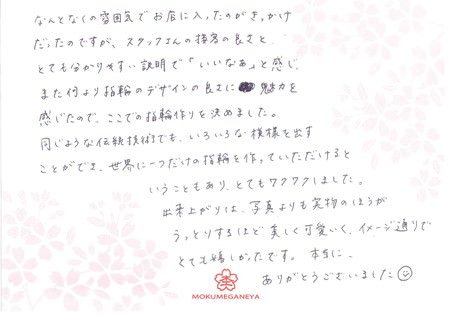 なんとなくの雰囲気でお店に入ったのがきっかけ
だったのですが、スタッフさんの接客の良さと
とても分かりやすい説明で「いいなぁ」と感じ
また何より指輪のデザインの良さに魅力を
感じたので、ここでの指輪作りを決めました。
同じような伝統技術でも、いろいろな模様を出す
ことができ、世界に一つだけの指輪を作っていただけると
いうこともあり、とてもワクワクしました。
出来上がりは、写真よりも実物のほうが
うっとりするほど美しく可愛いく、イメージ通りで
とても嬉しかったです。本当に、
ありがとうございました
MOKUMEGANEYA